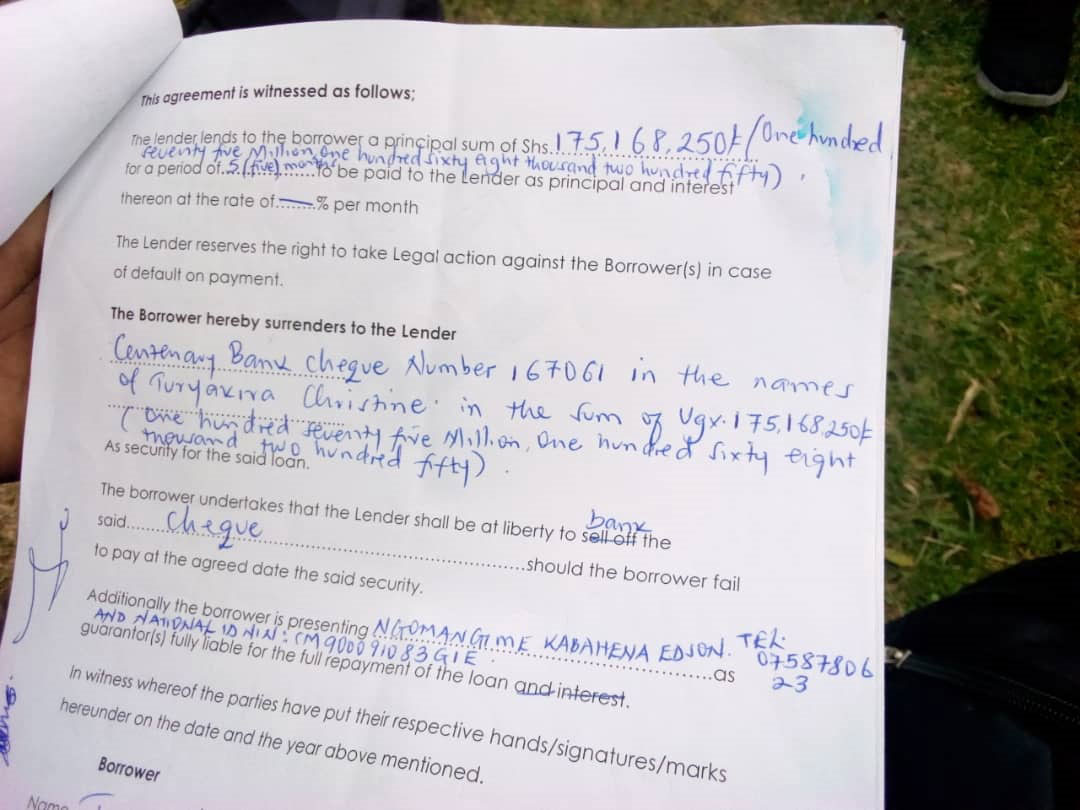 This agreement is witnessed as follows;
The lender lends to the borrower a principal sum of Shs.175,168,250/= (One hundred
seventy five Million, One hundred sixty eight thousand two hundred fifty).
for a period of.5.(five) months to be paid to the Lender as principal and interest
thereon at the rate of.......—.% per month
The Lender reserves the right to take Legal action against the Borrower(s) in case
of default on payment.
The Borrower hereby surrenders to the Lender
Centenary Bank cheque Number 167061 in the names
of Turyakira Christine in the sum of Ugx.175,168,250/=
(One hundred seventy five Million, One hundred sixty eight
thousand two hundred fifty).
As security for the said loan.
The borrower undertakes that the Lender shall be at liberty to sell off bank the
said.......cheque.......should the borrower fail
to pay at the agreed date the said security.
Additionally the borrower is presenting NGOMANGIME KABAHENA EDSON. TEL: 0758780623
AND NATIONAL ID NIN: CM900091083G1E.......as
guarantor(s) fully liable for the full repayment of the loan and interest.
In witness whereof the parties have put their respective hands/signatures/marks
hereunder on the date and the year above mentioned.
Borrower
Name